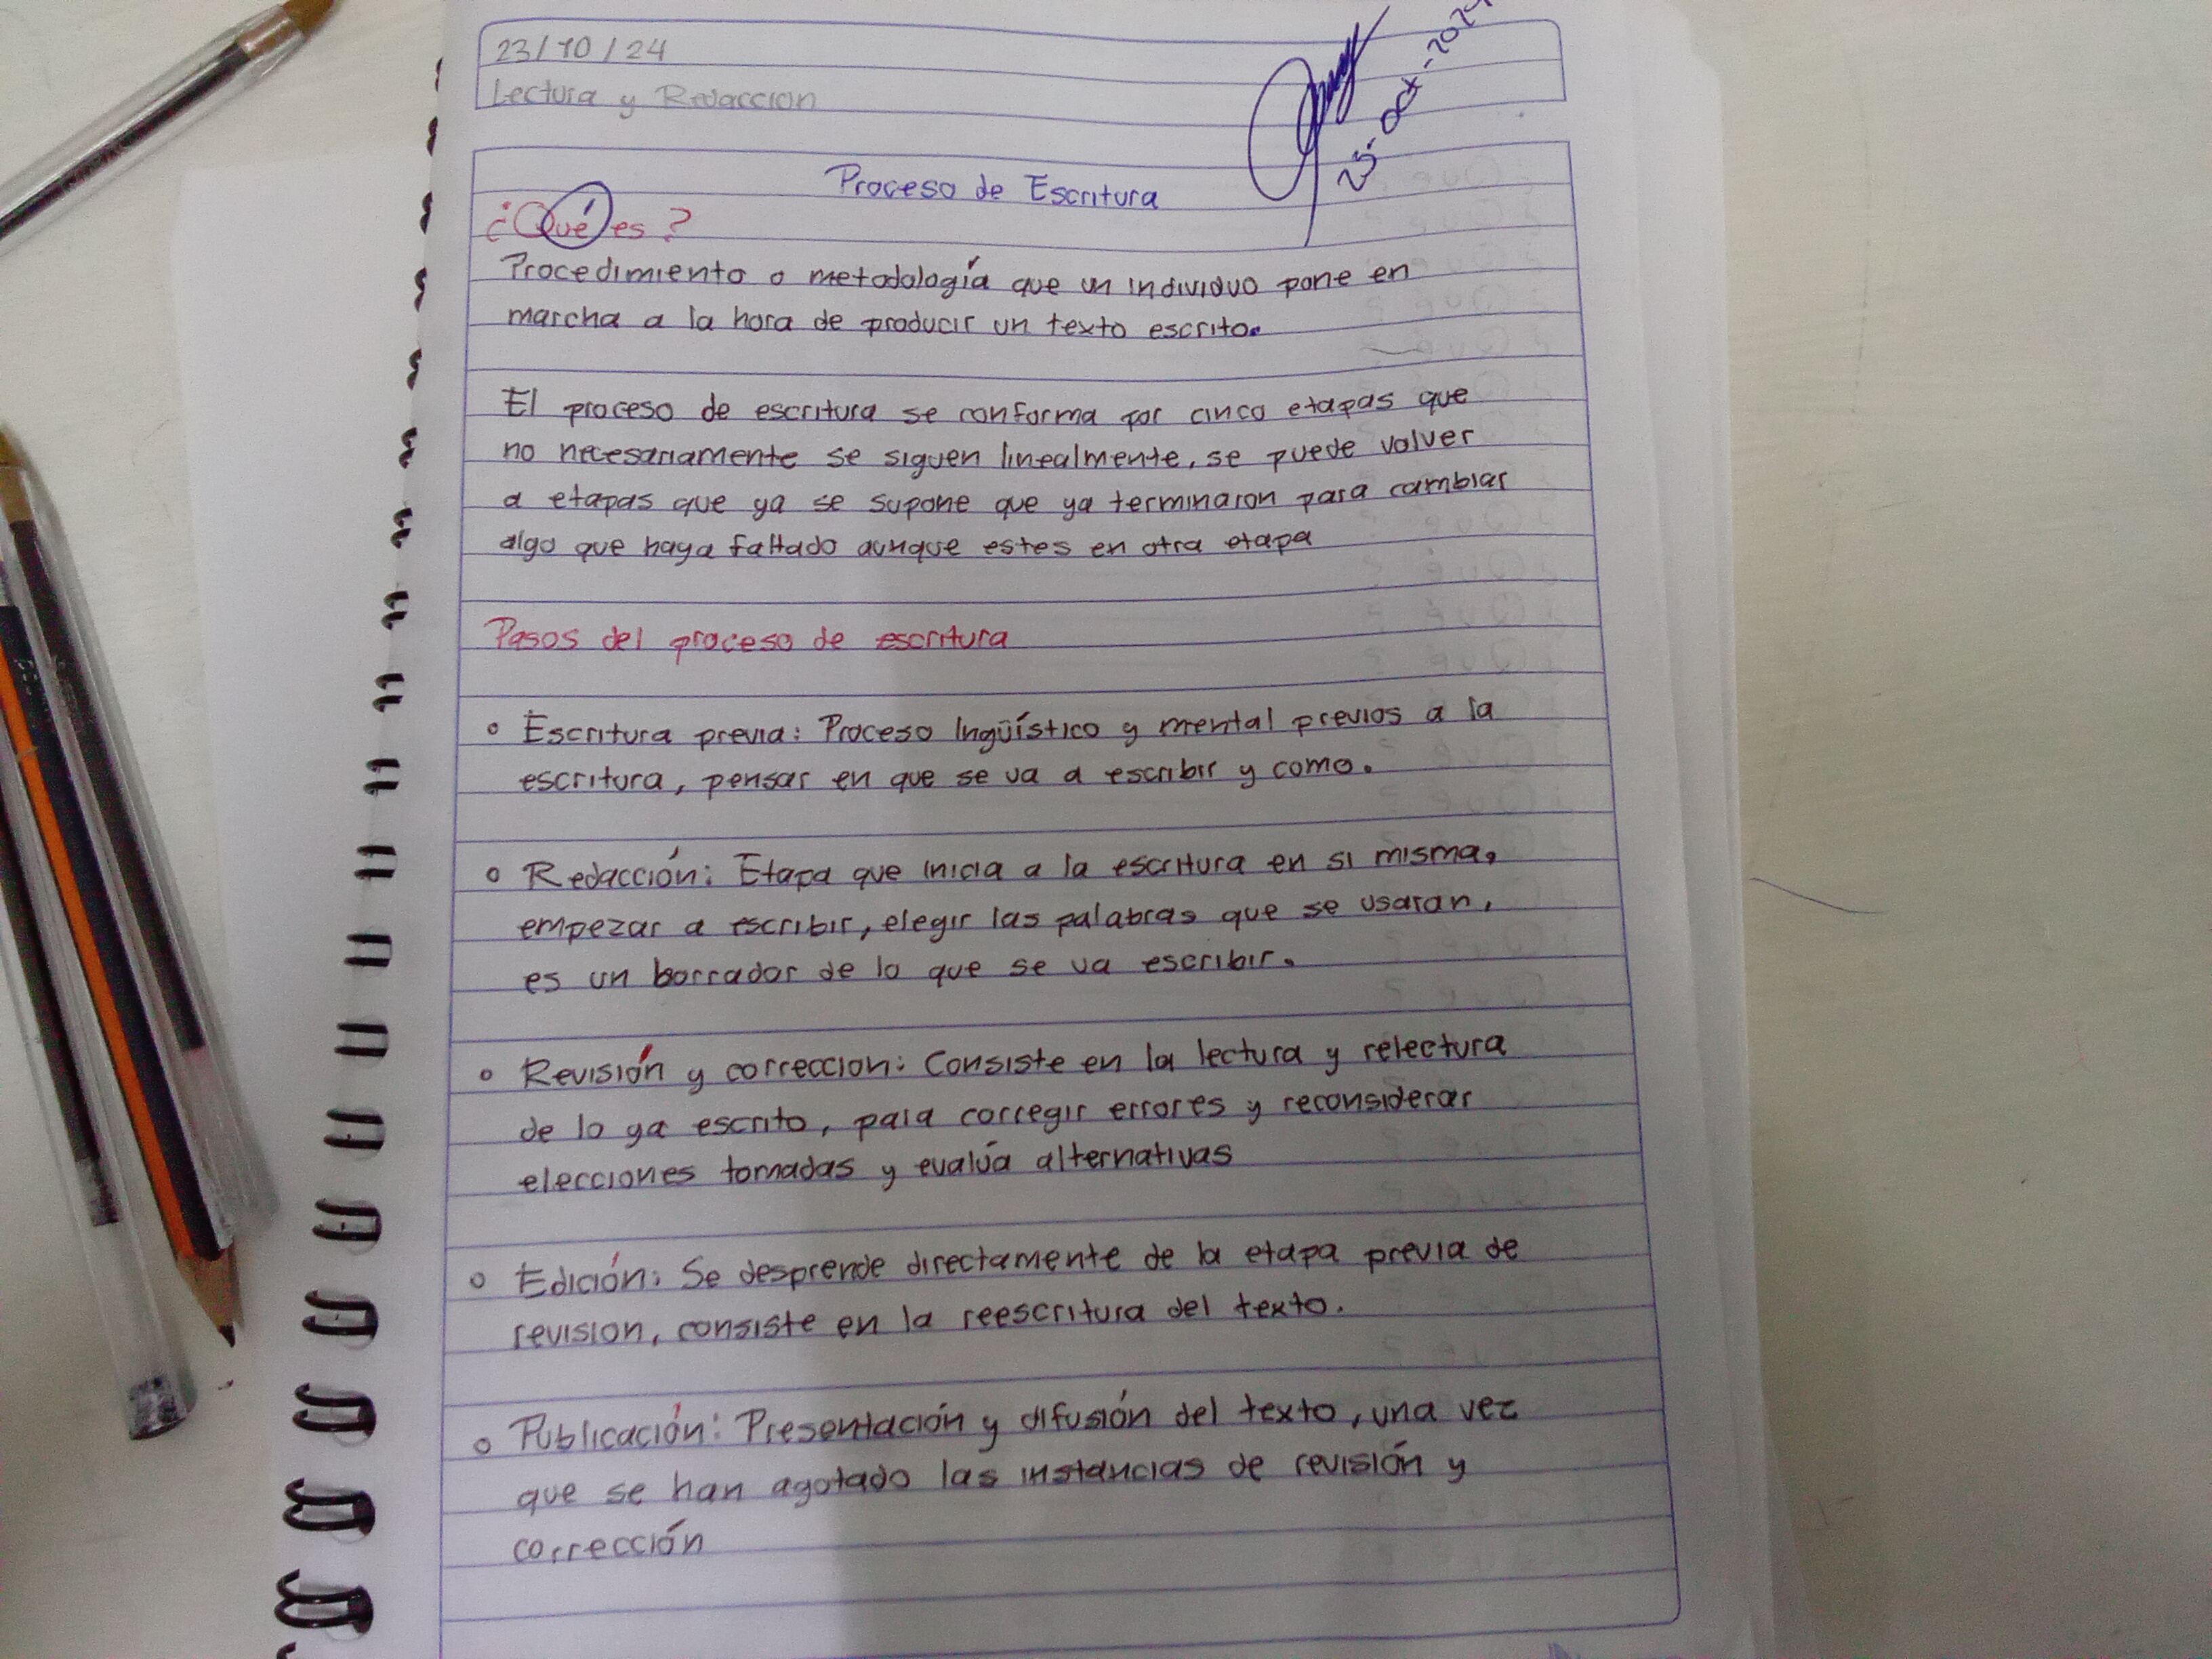 23/10/24
Lectura y Redaccion
23-oct-2024
Proceso de Escritura
¿Qué es?
Procedimiento o metodología que un individuo pone en
marcha a la hora de producir un texto escrito.
El proceso de escritura se conforma por cinco etapas que
no necesariamente se siguen linealmente, se puede volver
a etapas que ya se supone que ya terminaron para cambiar
algo que haya faltado aunque estes en otra etapa
Pasos del proceso de escritura
• Escritura previa: Proceso lingüístico y mental previos a la
escritura, pensar en que se va a escribir y como.
• Redacción: Etapa que inicia a la escritura en si misma,
empezar a escribir, elegir las palabras que se usaran,
es un borrador de lo que se va escribir.
• Revisión y correccion: Consiste en la lectura y relectura
de lo ya escrito, para corregir errores y reconsiderar
elecciones tomadas y evalúa alternativas
• Edición: Se desprende directamente de la etapa previa de
revision, consiste en la reescritura del texto.
• Publicación: Presentación y difusión del texto, una vez
que se han agotado las instancias de revisión y
corrección